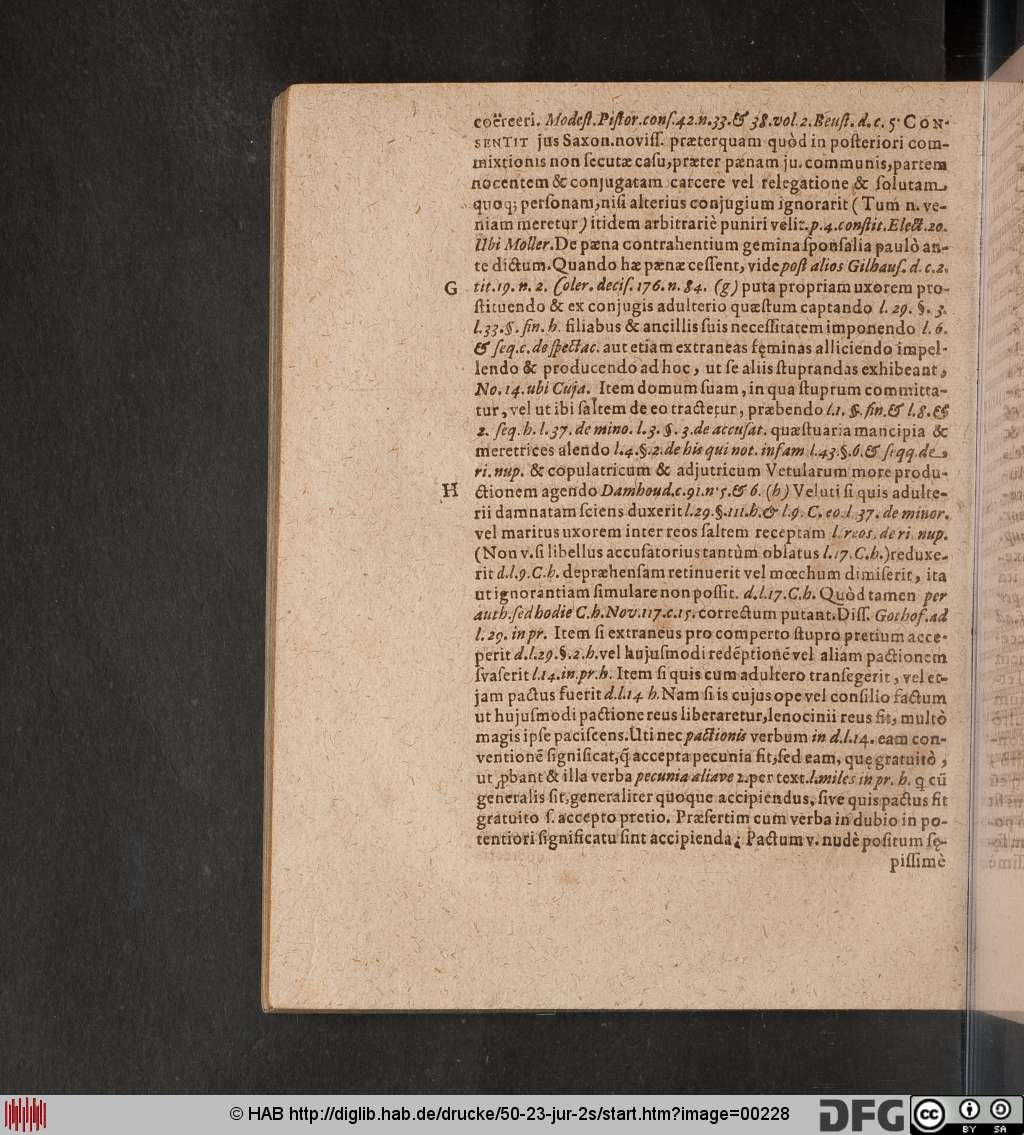 coërceri. Modest. Pistor. cons. 42. n. 33. & 38. vol. 2. Beust. d. c. 5. CON-
SENTIT jus Saxon. noviss. præterquam quòd in posteriori com-
mixtionis non secutæ casu, præter pænam ju. communis, partem
nocentem & conjugatam carcere vel relegatione & solutam
quoq; personam, nisi alterius conjugium ignorarit (Tum n. ve-
niam meretur) itidem arbitrariè puniri velit. p. 4. constit. Elect. 20.
Ubi Moller. De pæna contrahentium gemina sponsalia paulò an-
te dictum. Quando hæ pænæ cessent, vide post alios Gilhaus. d. c. 2.
G tit. 19. n. 2. Coler. decis. 176. n. 84. (g) puta propriam uxorem pro-
stituendo & ex conjugis adulterio quæstum captando l. 29. §. 3.
l. 33. §. fin. h. filiabus & ancillis suis necessitatem imponendo l. 6.
& seq. c. de spectac. aut etiam extraneas fęminas alliciendo impel-
lendo & producendo ad hoc, ut se aliis stuprandas exhibeant,
No. 14. ubi Cuja. Item domum suam, in qua stuprum committa-
tur, vel ut ibi saltem de eo tractetur, præbendo l. 1. §. fin. & l. 8. &
2. seq. h. l. 37. de mino. l. 3. §. 3. de accusat. quæstuaria mancipia &
meretrices alendo l. 4. §. 2. de his qui not. infam l. 43. §. 6. & seqq. de
ri. nup. & copulatricum & adjutricum Vetularum more produ-
H ctionem agendo Damhoud. c. 91. n. 5. & 6. (h) Veluti si quis adulte-
rii damnatam sciens duxerit l. 29. §. 111. h. & l. 9. C. eo. l. 37. de minor.
vel maritus uxorem inter reos saltem receptam l. reos. de ri. nup.
(Non v. si libellus accusatorius tantùm oblatus l. 17. C. h.) reduxe-
rit d. l. 9. C. h. depræhensam retinuerit vel mœchum dimiserit, ita
ut ignorantiam simulare non possit. d. l. 17. C. h. Quòd tamen per
auth. sed hodie C. h. Nov. 117. c. 15. correctum putant. Diss. Gothof. ad
l. 29. in pr. Item si extraneus pro comperto stupro pretium acce-
perit d. l. 29. §. 2. h. vel hujusmodi redēptionē vel aliam pactionem
svaserit l. 14. in. pr. h. Item si quis cum adultero transegerit, vel et-
jam pactus fuerit d. l. 14 h. Nam si is cujus ope vel consilio factum
ut hujusmodi pactione reus liberaretur, lenocinii reus fit, multò
magis ipse paciscens. Uti nec pactionis verbum in d. l. 14. eam con-
ventionē significat, q̃ accepta pecunia fit, sed eam, quę gratuitò,
ut ꝓbant & illa verba pecunia aliave 2. per text. l. miles in pr. h. q cū
generalis sit, generaliter quoque accipiendus, sive quis pactus fit
gratuito s. accepto pretio. Præsertim cum verba in dubio in po-
tentiori significatu sint accipienda; Pactum v. nudè positum sę-
pissimè
© HAB http://diglib.hab.de/drucke/50-23-jur-2s/start.htm?image=00228
DFG
cc BY SA